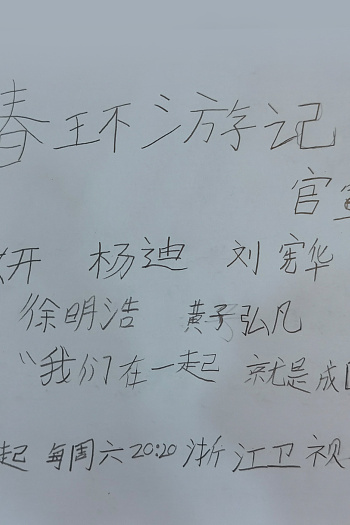 春环游记
官
妍 杨迪 刘宪华
徐明浩 黄子弘凡
"我们在一起 就是成
起 每周六20:20 浙江卫视